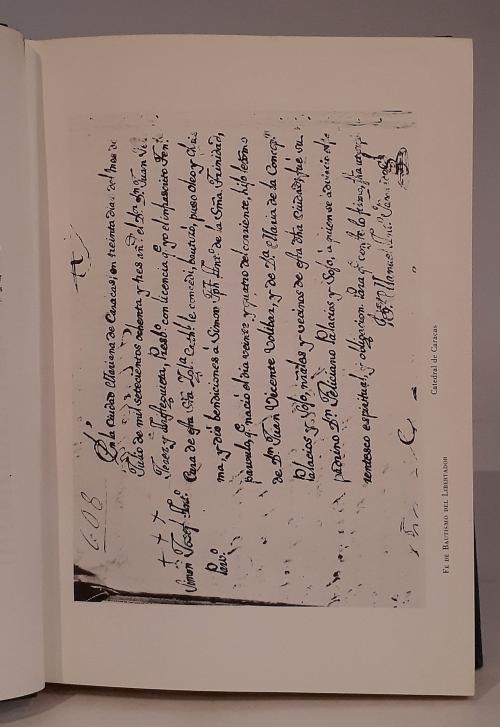 608
Simon Josef Anto.
Parvo.
En la Ciudad Mariana de Caracas, en treinta dias del Mes de
Julio de mil setecientos ochenta y tres añ. el Dr. Dn. Juan Felix
Jerez y Aristeguieta, Presbo. con licencia q. yo el infrascrito Tente.
Cura de esta Sta. Yglecia Cathl. le concedi, bautizó, puso oleo y Chris
ma, y dió bendiciones á Simon Jph. Anto. de la Sma. Trinidad,
parvulo, qe. nació el dia veinte, y quatro del corriente, hijo lexmo
de Dn. Juan Vicente Volibar, y de Da. Maria de la Concepn.
Palacios y Sojo, nrales. y vecinos de esta dha Ciudad, fué su
padrino Dn. Feliciano Palacios y Sojo, á quien se advirtió el pa
rentesco espiritual, y obligacion para qe. conste lo firmo, fha
Manuel Anto.
Catedral de Caracas
Fe de Bautismo del Libertador